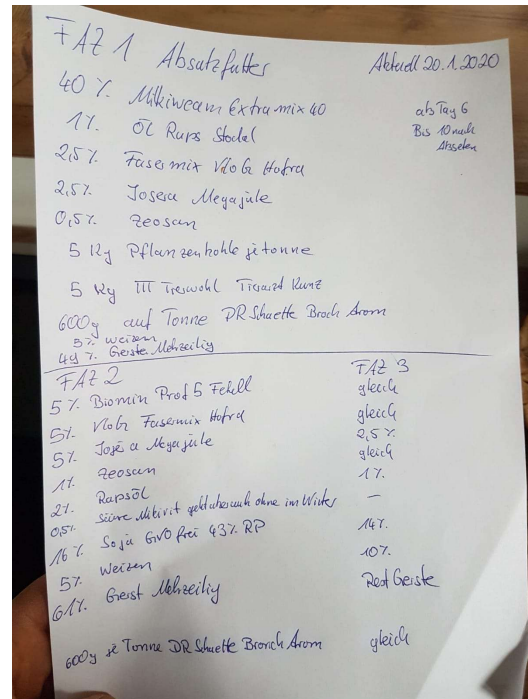 FAZ 1 Absatzfutter Aktuell 20.1.2020
40 % Milkiwean Extra mix 40 ab Tag 6
1% Öl Raps Bis 10 nach
2,5% Fasermix Vloz Hofra Absetzen
2,5% Josera Megajule
0,5% Zeosan
5 Kg Pflanzenkohle je tonne
5 Kg III Tierwohl Tierarzt Kunz
600g auf Tonne DR Schaette Bronch Arom
5% Weizen
49 % Gerste Mehrzeilig
FAZ 2 FAZ 3
5% Biomin Prof 5 Ferkel gleich
5% Fasermix Hofra gleich
5% Josera Megajule 2,5%
1% Zeosan gleich
2% Rapsöl 1%
0,5% Säure Milkivit geht aber auch ohne im Winter –
16% Soja GVO frei 43% RP 14%
5% Weizen 10%
61% Gerst Mehrzeilig Rest Gerste
600g je Tonne DR Schaette Bronch Arom gleich